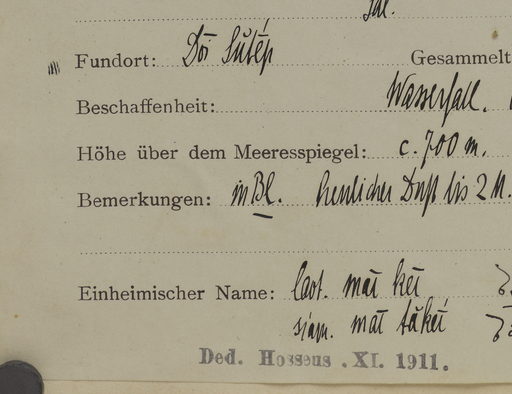 Fundort: Dōi Sutēp Gesammelt
Beschaffenheit: Wasserfall.
Höhe über dem Meeresspiegel: c. 700 m.
Bemerkungen: in Bl. herrlicher Duft bis 2 M.
Einheimischer Name: laot. māi kēi
siam. māi tākēi
Ded. Hosseus . XI. 1911.